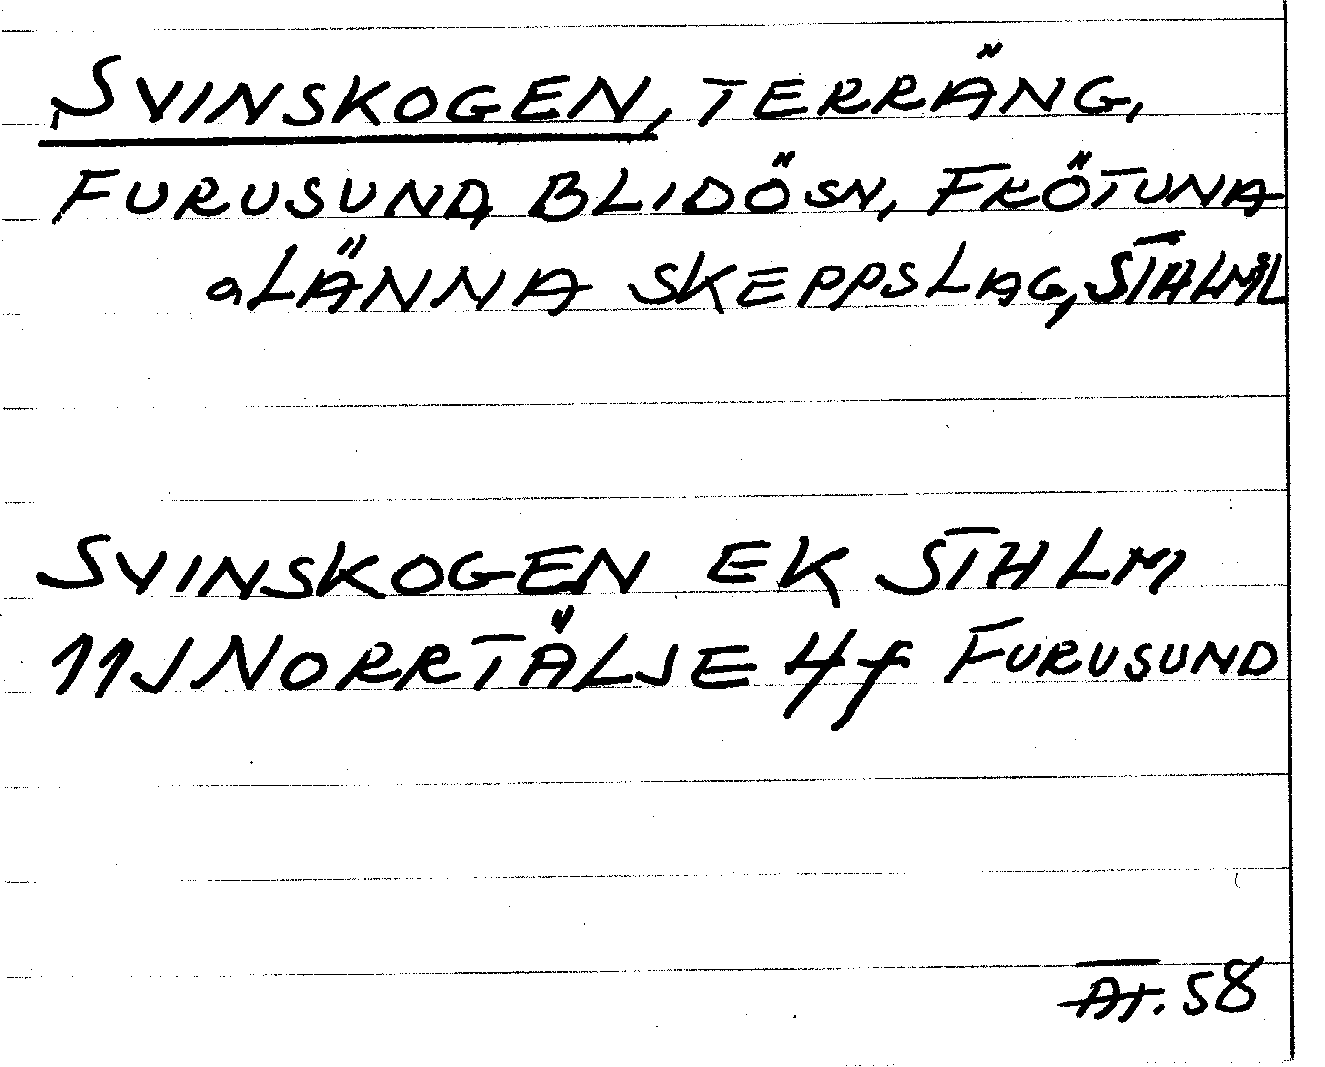 SVINSKOGEN, TERRÄNG,
FURUSUND, BLIDÖSN, FRÖTUNA
a LÄNNA SKEPPSLAG, STHLMSL
SVINSKOGEN EK STHLM
11J NORRTÄLJE 4f FURUSUND
58